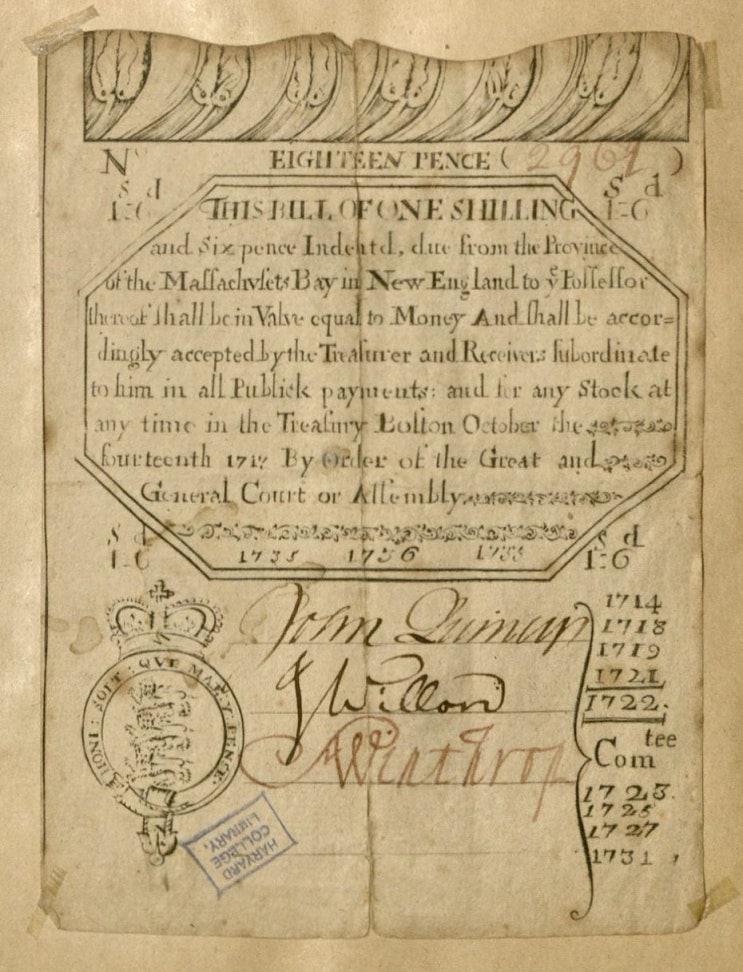 No EIGHTEEN PENCE (2961)
s d s d
1=6 THIS BILL OF ONE SHILLING 1=6
and Six pence Indentd, due from the Province
of the Maſſachuſets Bay in New England to yͤ Poſſeſſor
thereof ſhall be in Value equal to Money And ſhall be accor=
dingly accepted by the Treaſurer and Receivers ſubordinate
to him in all Publick payments: and for any Stock at
any time in the Treaſury Boſton October the
fourteenth 1717 By Order of the Great and
General Court or Aſſembly
s d s d
1=6 1735 1736 1738 1=6
1714
John Quincy 1718
1719
1721
J Willard 1722.
HONI : SOIT : QVI MAL Y PENCE.
A Winthrop Com tee
1723.
1725
1727
1731
HARVARD
COLLEGE
LIBRARY.